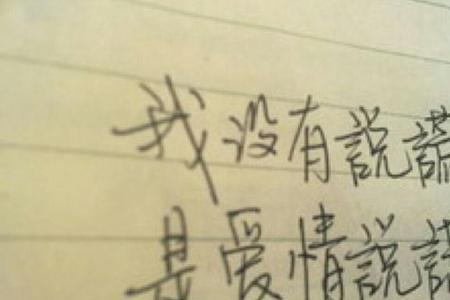 我没有說謊
是愛情說謊